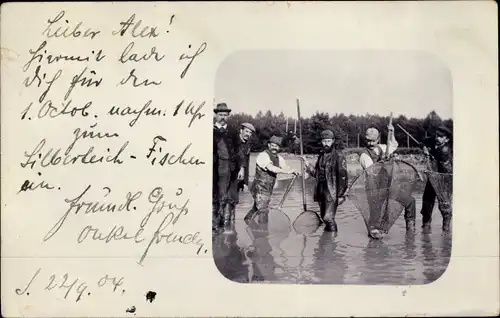 Lieber Alex!
Hiermit lade ich
Dich für den
1. Octob. nachm. 1 Uhr
zum
Silberteich-Fischen
ein.
freundl. Gruß
Onkel
22/9. 04.